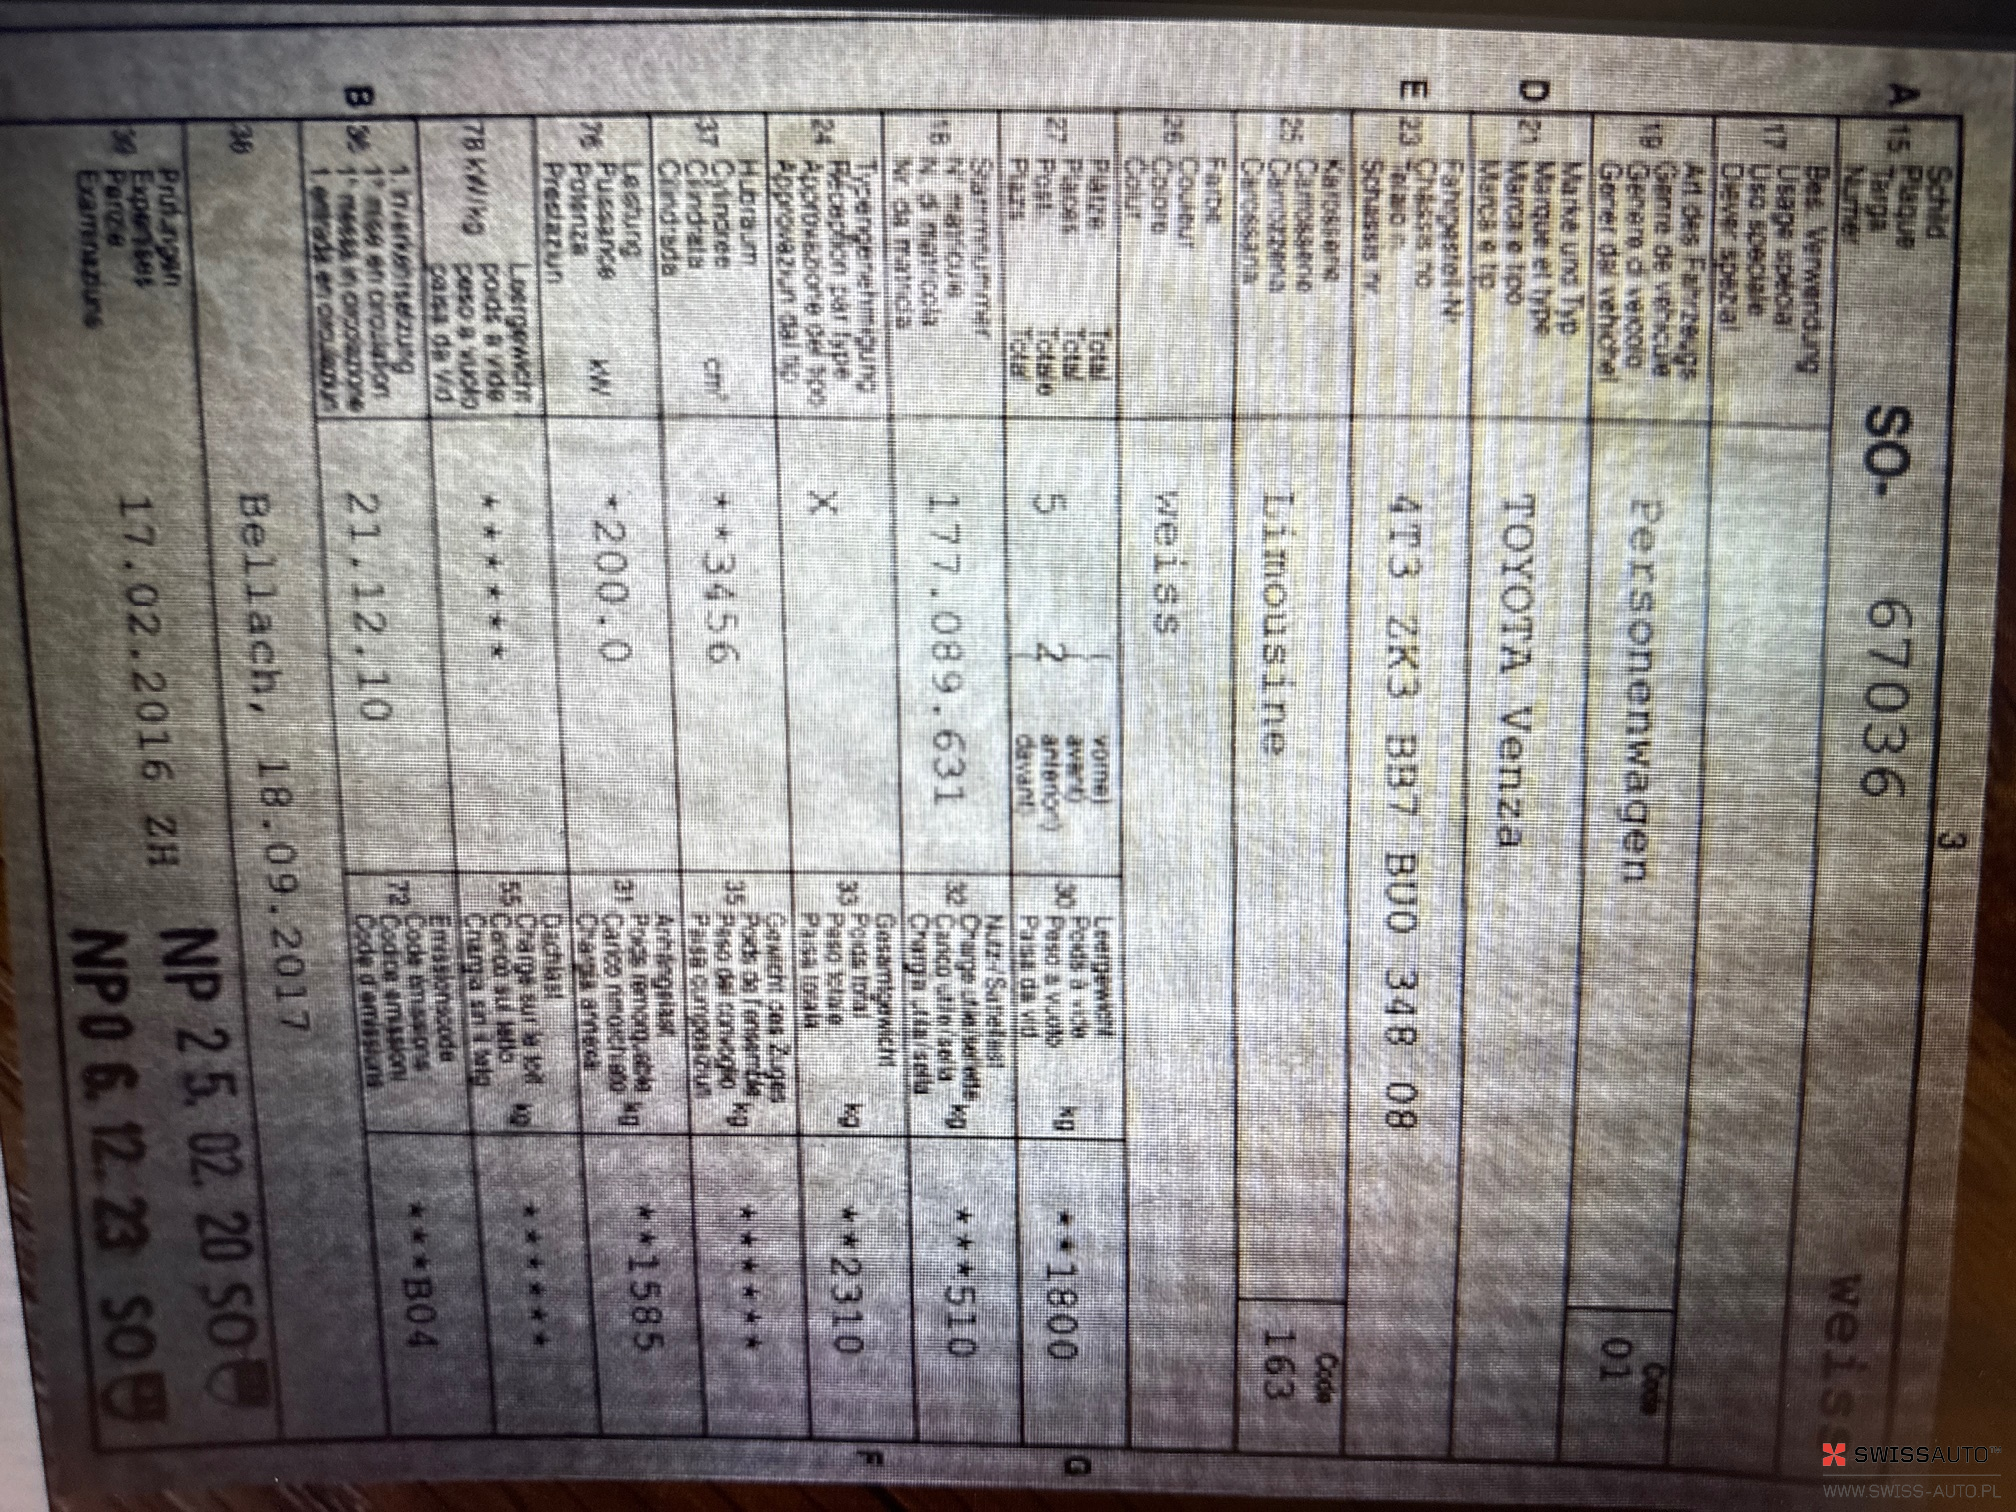 3
weiss
A 15 Schild
Plaque
Targa
Numer
SO- 67036
17 Bes. Verwendung
Usage spécial
Uso speciale
Diever spezial
19 Art des Fahrzeugs
Genre de véhicule
Genere di veicolo
Gener dal vehichel
Personenwagen
Code
01
D 21 Marke und Typ
Marque et type
Marca e tipo
Marca e tip
TOYOTA Venza
E 23 Fahrgestell-Nr.
Châssis no
Telaio n.
Schassis nr.
4T3 ZK3 BB7 BU0 348 08
25 Karosserie
Carrosserie
Carrozzeria
Carossaria
Limousine
Code
163
26 Farbe
Couleur
Colore
Colur
weiss
27 Plätze Total
Places Total
Posti Totale
Plazs Total
5 2
vorne)
avant)
anteriori)
davant)
G
30 Leergewicht
Poids à vide
Peso a vuoto
Paisa da vid
kg
**1800
18 Stammnummer
N° matricule
N. di matricola
Nr. da matricla
177.089.631
32 Nutz-/Sattellast
Charge utile/sellette kg
Carico utile/sella
Chargia utila/sella
***510
24 Typengenehmigung
Réception par type
Approvazione del tipo
Approvaziun dal tip
X
33 Gesamtgewicht
Poids total
Peso totale
Paisa totala
kg
**2310
F
37 Hubraum
Cylindrée
Cilindrata
Cilindrada
cm³
**3456
35 Gewicht des Zuges
Poids de l'ensemble
Peso del convoglio kg
Paisa cumposiziun
******
76 Leistung
Puissance
Potenza
Prestaziun
kW
*200.0
31 Anhängelast
Poids remorquable
Carico rimorchiato kg
Chargia annexa
**1585
78 kW/kg Leergewicht
poids à vide
peso a vuoto
paisa da vid
******
55 Dachlast
Charge sur le toit
Carico sul tetto
Chargia sin il tetg
kg
******
B 36 1. Inverkehrsetzung
1re mise en circulation
1a messa in circolazione
1. entrada en circulaziun
21.12.10
72 Emissionscode
Code émissions
Codice emissioni
Code d'emissiuns
***B04
38
Bellach, 18.09.2017
39 Prüfungen
Expertises
Perizie
Examinaziuns
17.02.2016 ZH
NP 25. 02. 20 SO
NP 06. 12. 23 SO
SWISSAUTO
WWW.SWISS-AUTO.PL